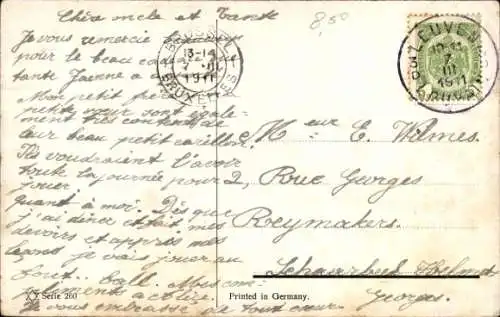 Chère oncle et Tante
Je vous remercie beaucoup
pour le beau
tante Jeanne a
Mon petit frère
petite sœur sont égale-
ment très contents de
leur beau petit carillon.
Ils voudraient l'avoir
toute la journée pour
jouer
quant à moi. Dès que
j'ai dîner et fait mes
devoirs et appris mes
leçons je vais jouer au
foot-ball. Mes com-
pliments à
Je vous embrasse de tout cœur.
Georges.
8,50
BRUSSEL
13-14
7 III
1911
BRUXELLES
LEUVEN
7
III
1911
LOUVAIN
M eur E. Wilmes.
2, Rue Georges
Raeymakers.
Schaarbeek Helmet
XX Serie 260
Printed in Germany.